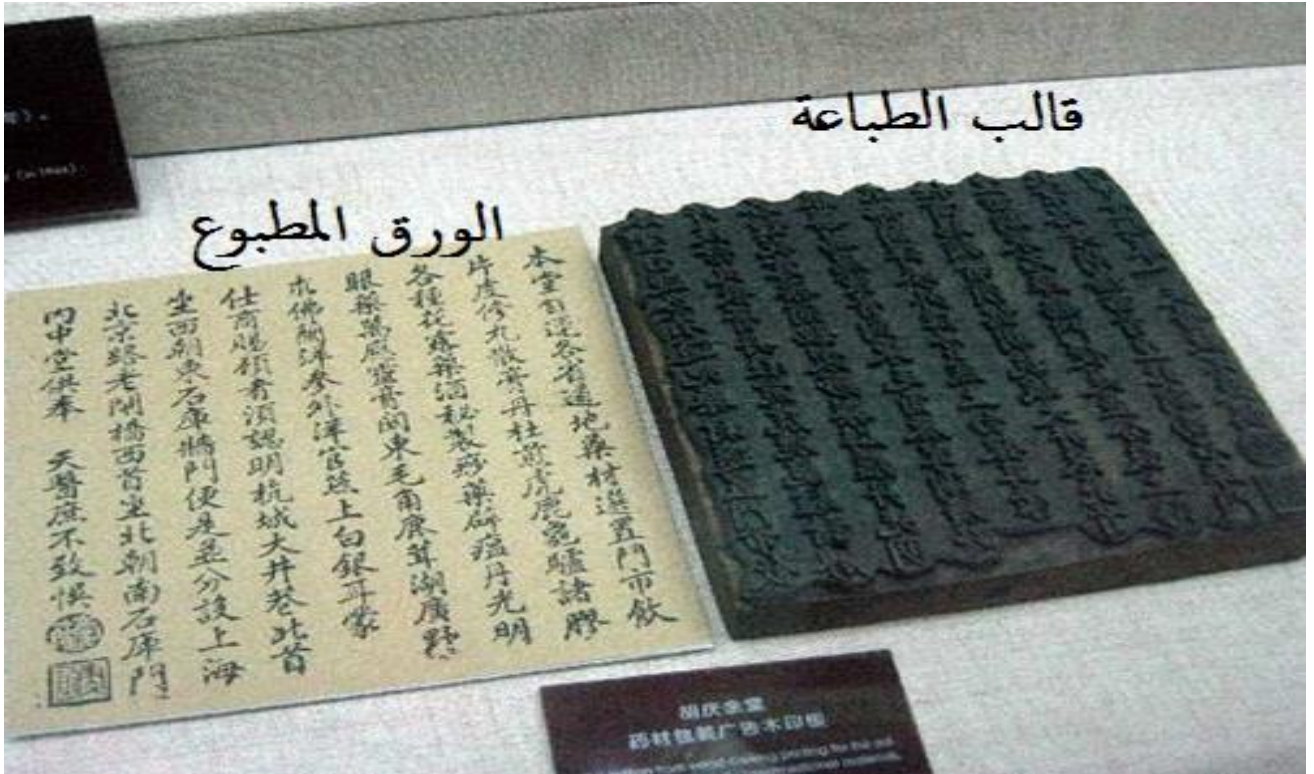 قالب الطباعة
الورق المطبوع
本堂自運各省道地藥材選置門市飲
片虔修丸散膏丹杜煎虎鹿龜驢諸膠
各種花露藥酒秘製痧藥辟瘟丹光明
眼藥萬應靈膏関東毛角鹿茸湖廣野
朮佛蘭洋參外洋官燕上白銀耳蒙
仕商賜顧者須認明杭城大井巷北首
坐西朝東石庫牆門便是並分設上海
北京路老閘橋西首坐北朝南石庫門
內中堂供奉 天醫庶不致悞
胡庆余堂
药材包装广告木印板
printing for the out